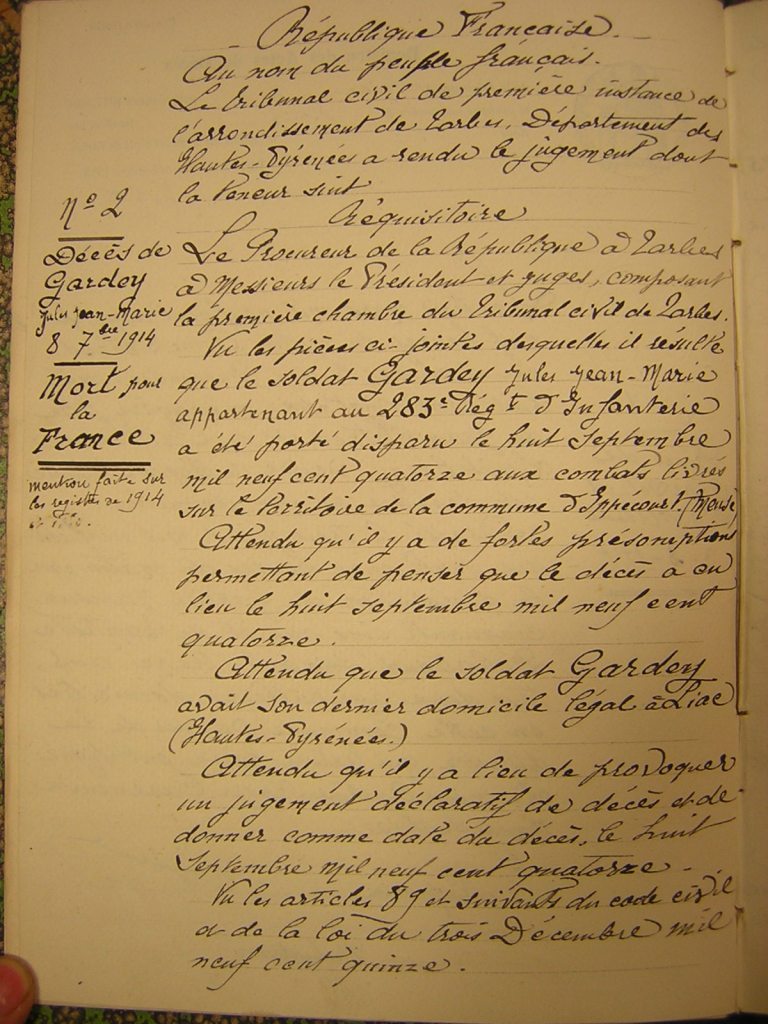 République Française.
Au nom du peuple français.
Le tribunal civil de première instance de
l'arrondissement de Tarbes, Département des
Hautes-Pyrénées a rendu le jugement dont
la teneur suit
Réquisitoire
Nº 2
Décès de
Gardey
Jules Jean-Marie
8 7bre 1914
Mort pour
la
France
mention faite sur
les registres de 1914
et
Le Procureur de la République à Tarbes
à Messieurs le Président et juges, composant
la première chambre du tribunal civil de Tarbes.
Vu les pièces ci-jointes desquelles il résulte
que le soldat Gardey Jules Jean-Marie
appartenant au 283e Régt d'Infanterie
a été porté disparu le huit septembre
mil neuf cent quatorze aux combats livrés
sur le territoire de la commune d'Ippécourt. (Meuse)
Attendu qu'il y a de fortes présomptions
permettant de penser que le décès a eu
lieu le huit septembre mil neuf cent
quatorze.
Attendu que le soldat Gardey
avait son dernier domicile légal à Liac
(Hautes-Pyrénées.)
Attendu qu'il y a lieu de provoquer
un jugement déclaratif de décès et de
donner comme date du décès, le huit
septembre mil neuf cent quatorze.
Vu les articles 89 et suivants du code civil
et de la loi du trois Décembre mil
neuf cent quinze.